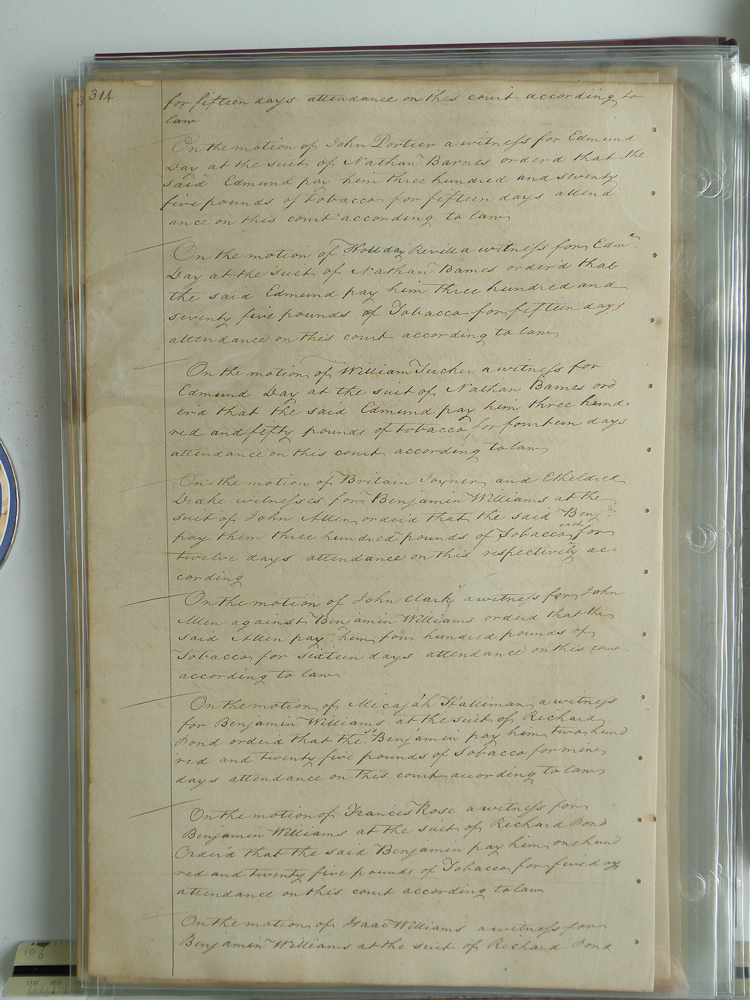 314
for fifteen days attendance on this court according to
law
On the motion of John Portier a witness for Edmund
Day at the suit of Nathan Barnes order'd that the
said Edmund pay him three hundred and seventy
five pounds of tobacco for fifteen days attend
ance on this court according to law
On the motion of Holliday Revill a witness for Edmd.
Day at the suit of Nathan Barnes order'd that
the said Edmund pay him three hundred and
seventy five pounds of Tobacco for fifteen days
attendance on this court according to law
On the motion of William Tucker a witness for
Edmund Day at the suit of Nathan Barnes ord
er'd that the said Edmund pay him three hund-
red and fifty pounds of tobacco for fourteen days
attendance on this court according to law
On the motion of Britain Joyner and Etheldred
Drake witnesses for Benjamin Williams at the
suit of John Allen order'd that the said Benj.
pay them three hundred pounds of Tobacco each for
twelve days attendance on this respectively ac-
cording
On the motion of John Clark a witness for John
Allen against Benjamin Williams order'd that the
said Allen pay him four hundred pounds of
Tobacco for sixteen days attendance on this cour
according to law
On the motion of Micajah Halliman a witness
for Benjamin Williams at the suit of Richard
Pond order'd that the sd. Benjamin pay him two hund
red and twenty five pounds of Tobacco for nine
days attendance on this court according to law
On the motion of Francis Rose a witness for
Benjamin Williams at the suit of Richard Pond
Order'd that the said Benjamin pay him one hund
red and twenty five pounds of Tobacco for five day
attendance on this court according to law
On the motion of Isaac Williams a witness for
Benjamin Williams at the suit of Richard Pond